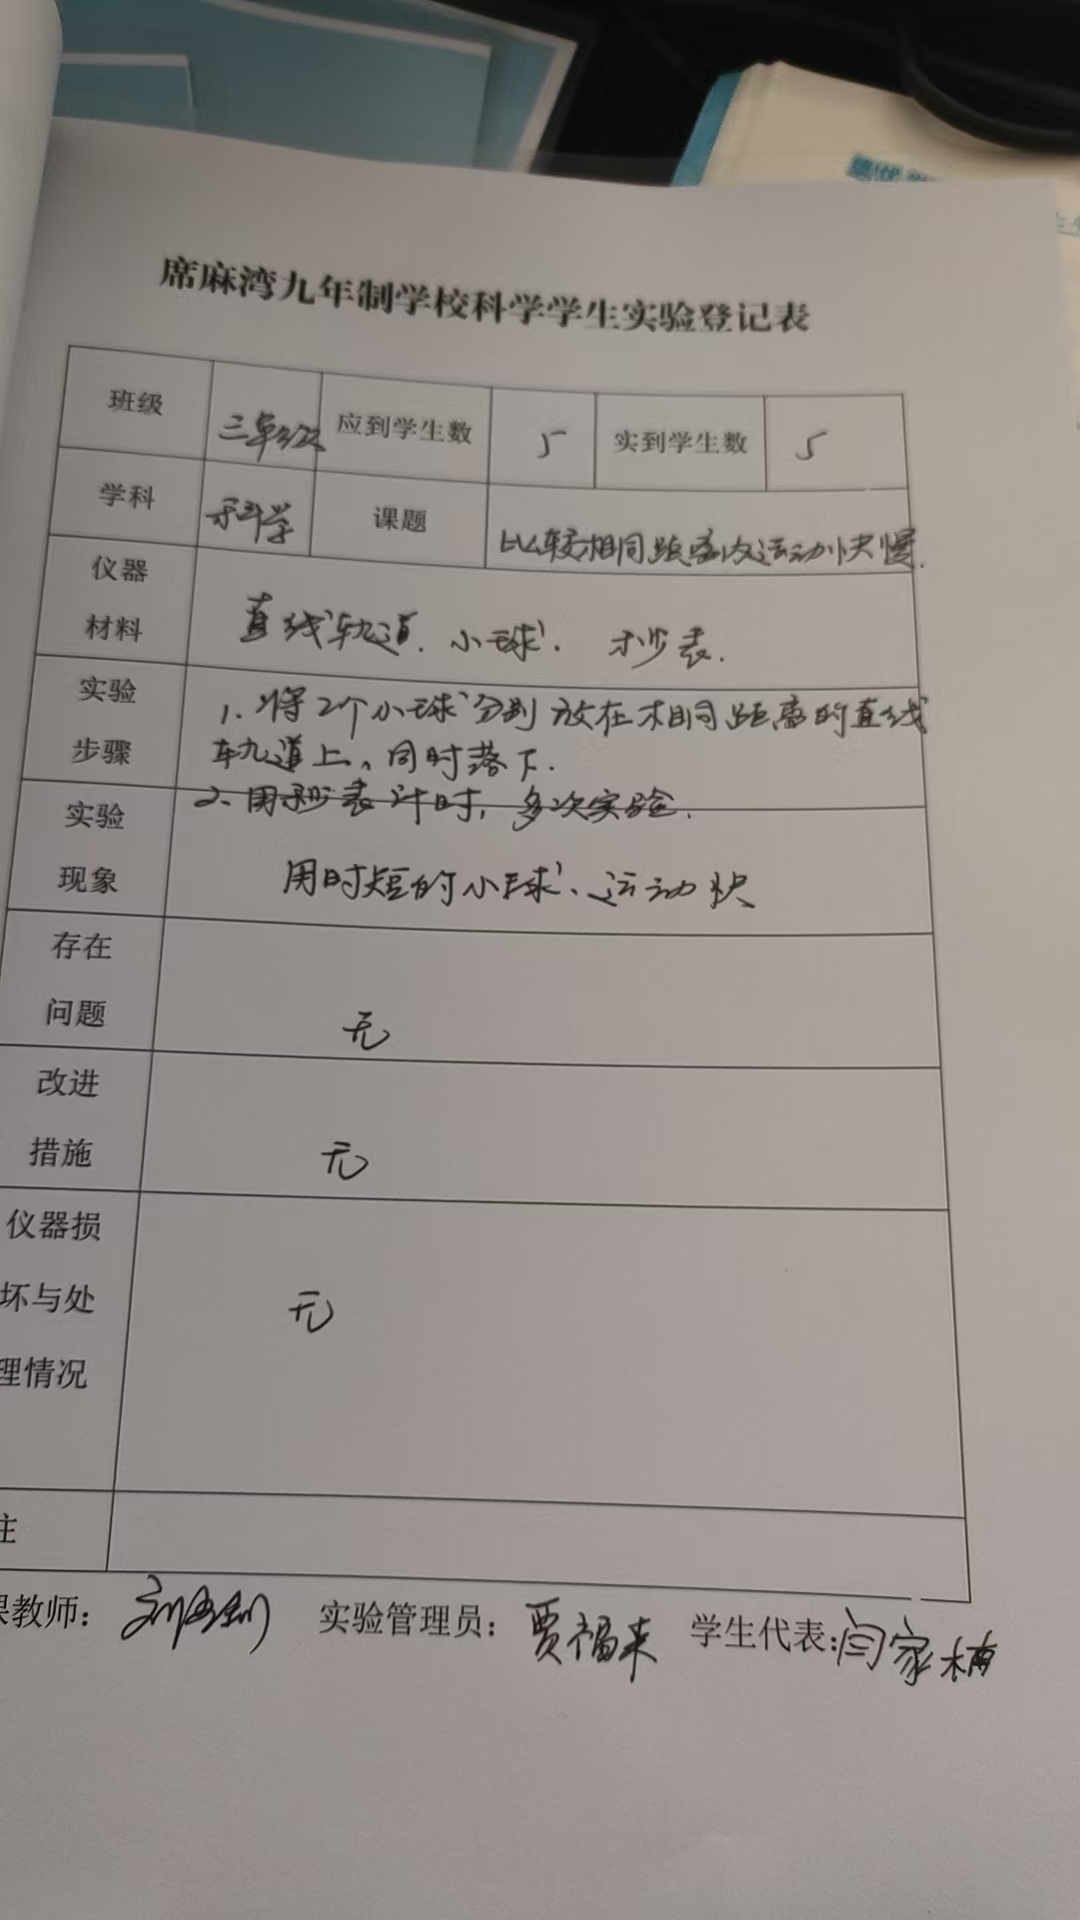 席麻湾九年制学校科学学生实验登记表
班级 三年级 应到学生数 5 实到学生数 5
学科 科学 课题 比较相同距离内运动快慢.
仪器
材料
直线轨道. 小球. 秒表.
实验
步骤
1. 将2个小球分别放在相同距离的直线
轨道上、同时落下.
2、用秒表计时, 多次实验.
实验
现象
用时短的小球、运动快
存在
问题
无
改进
措施
无
仪器损
坏与处
理情况
无
注
课教师:
实验管理员: 贾福来 学生代表: 闫家楠